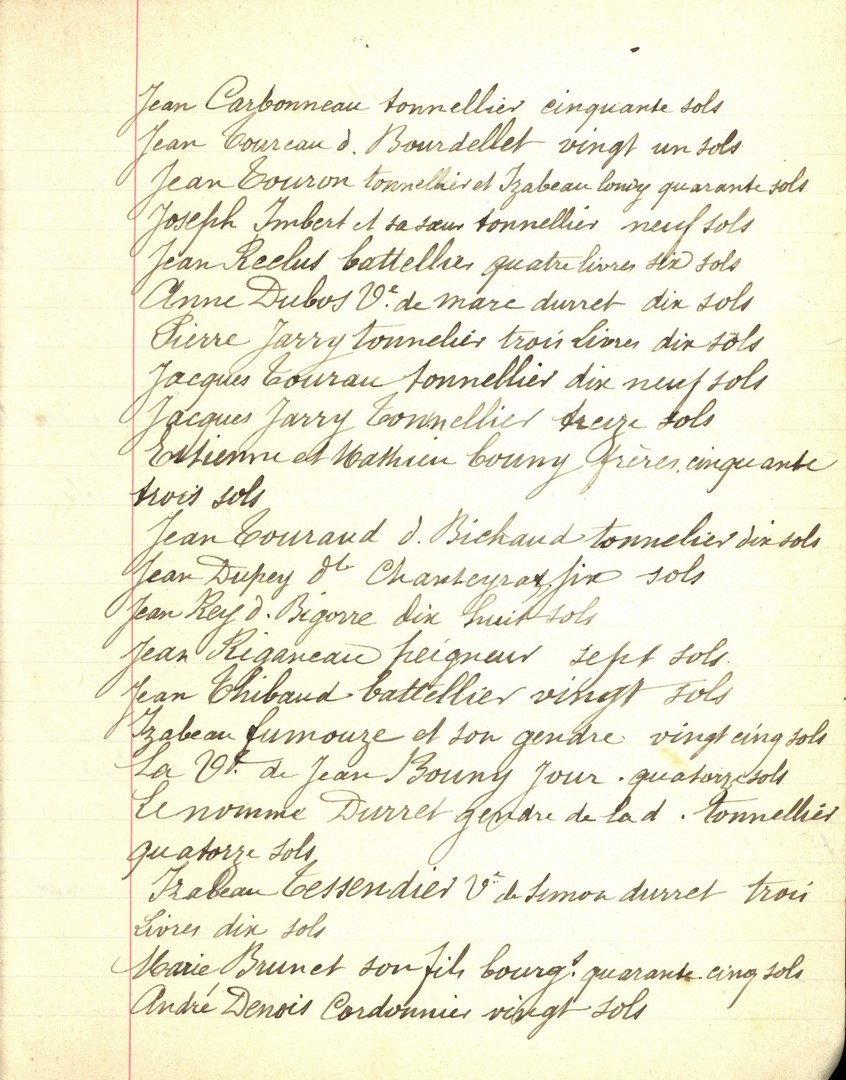 Jean Carbonneau tonnellier cinquante sols
Jean Toureau d. Bourdellet vingt un sols
Jean Touron tonnellier et Izabeau quarante sols
Joseph Imbert et sa sœur tonnellier neuf sols
Jean Reclus battellier quatre livres six sols
Anne Dubos Ve. de marc durret dix sols
Pierre Jarry tonnelier trois Livres dix sols
Jacques Tourau tonnellier dix neuf sols
Jacques Jarry Tonnellier treize sols
Ettienne et Mathieu Bouny frères cinquante
trois sols
Jean Touraud d. Bichaud tonnelier dix sols
Jean Dupey dt Chanteyrat six sols
Jean Rey d. Bigorre dix huit sols
Jean Riganeau peigneur sept sols
Jean Thibaud battellier vingt sols
Izabeau fumouze et son gendre vingt cinq sols
La Ve. de Jean Bouny Jour. quatorze sols
Le nomme Durret gendre de la d. tonnellier
quatorze sols
Izabeau Tessendier Ve de Simon durret trois
Livres dix sols
Marie Brunet son fils bourgs. quarante cinq sols
André Denois Cordonnier vingt sols